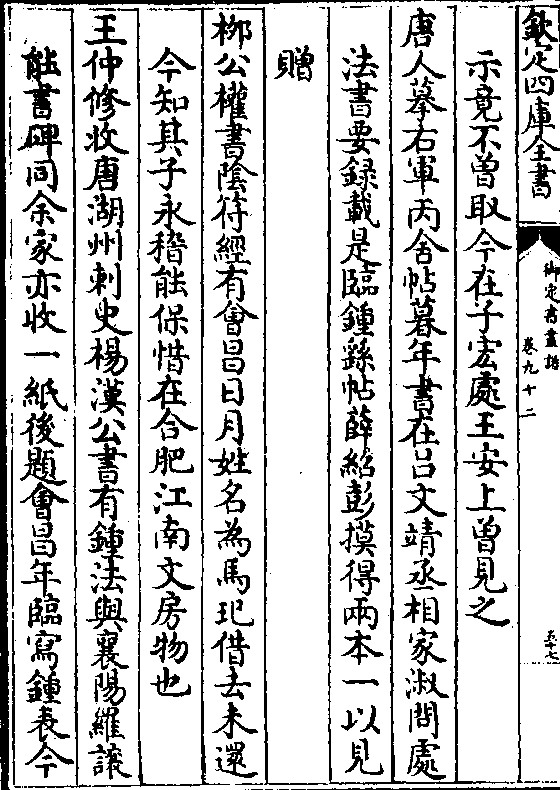 欽定四庫全書
御定書畫譜
卷九十二
五十七
示竟不曽取今在子宏處王安上曽見之
唐人摹右軍丙舍帖暮年書在吕文靖丞相家淑問處
法書要録載是臨鍾繇帖薛紹彭摸得兩本一以見
贈
柳公權書陰符經有會昌日月姓名為馬玘借去未還
今知其子永稽能保惜在合肥江南文房物也
王仲修收唐湖州刺史楊漢公書有鍾法與襄陽羅譲
能書碑同余家亦收一紙後題會昌年臨寫鍾表今